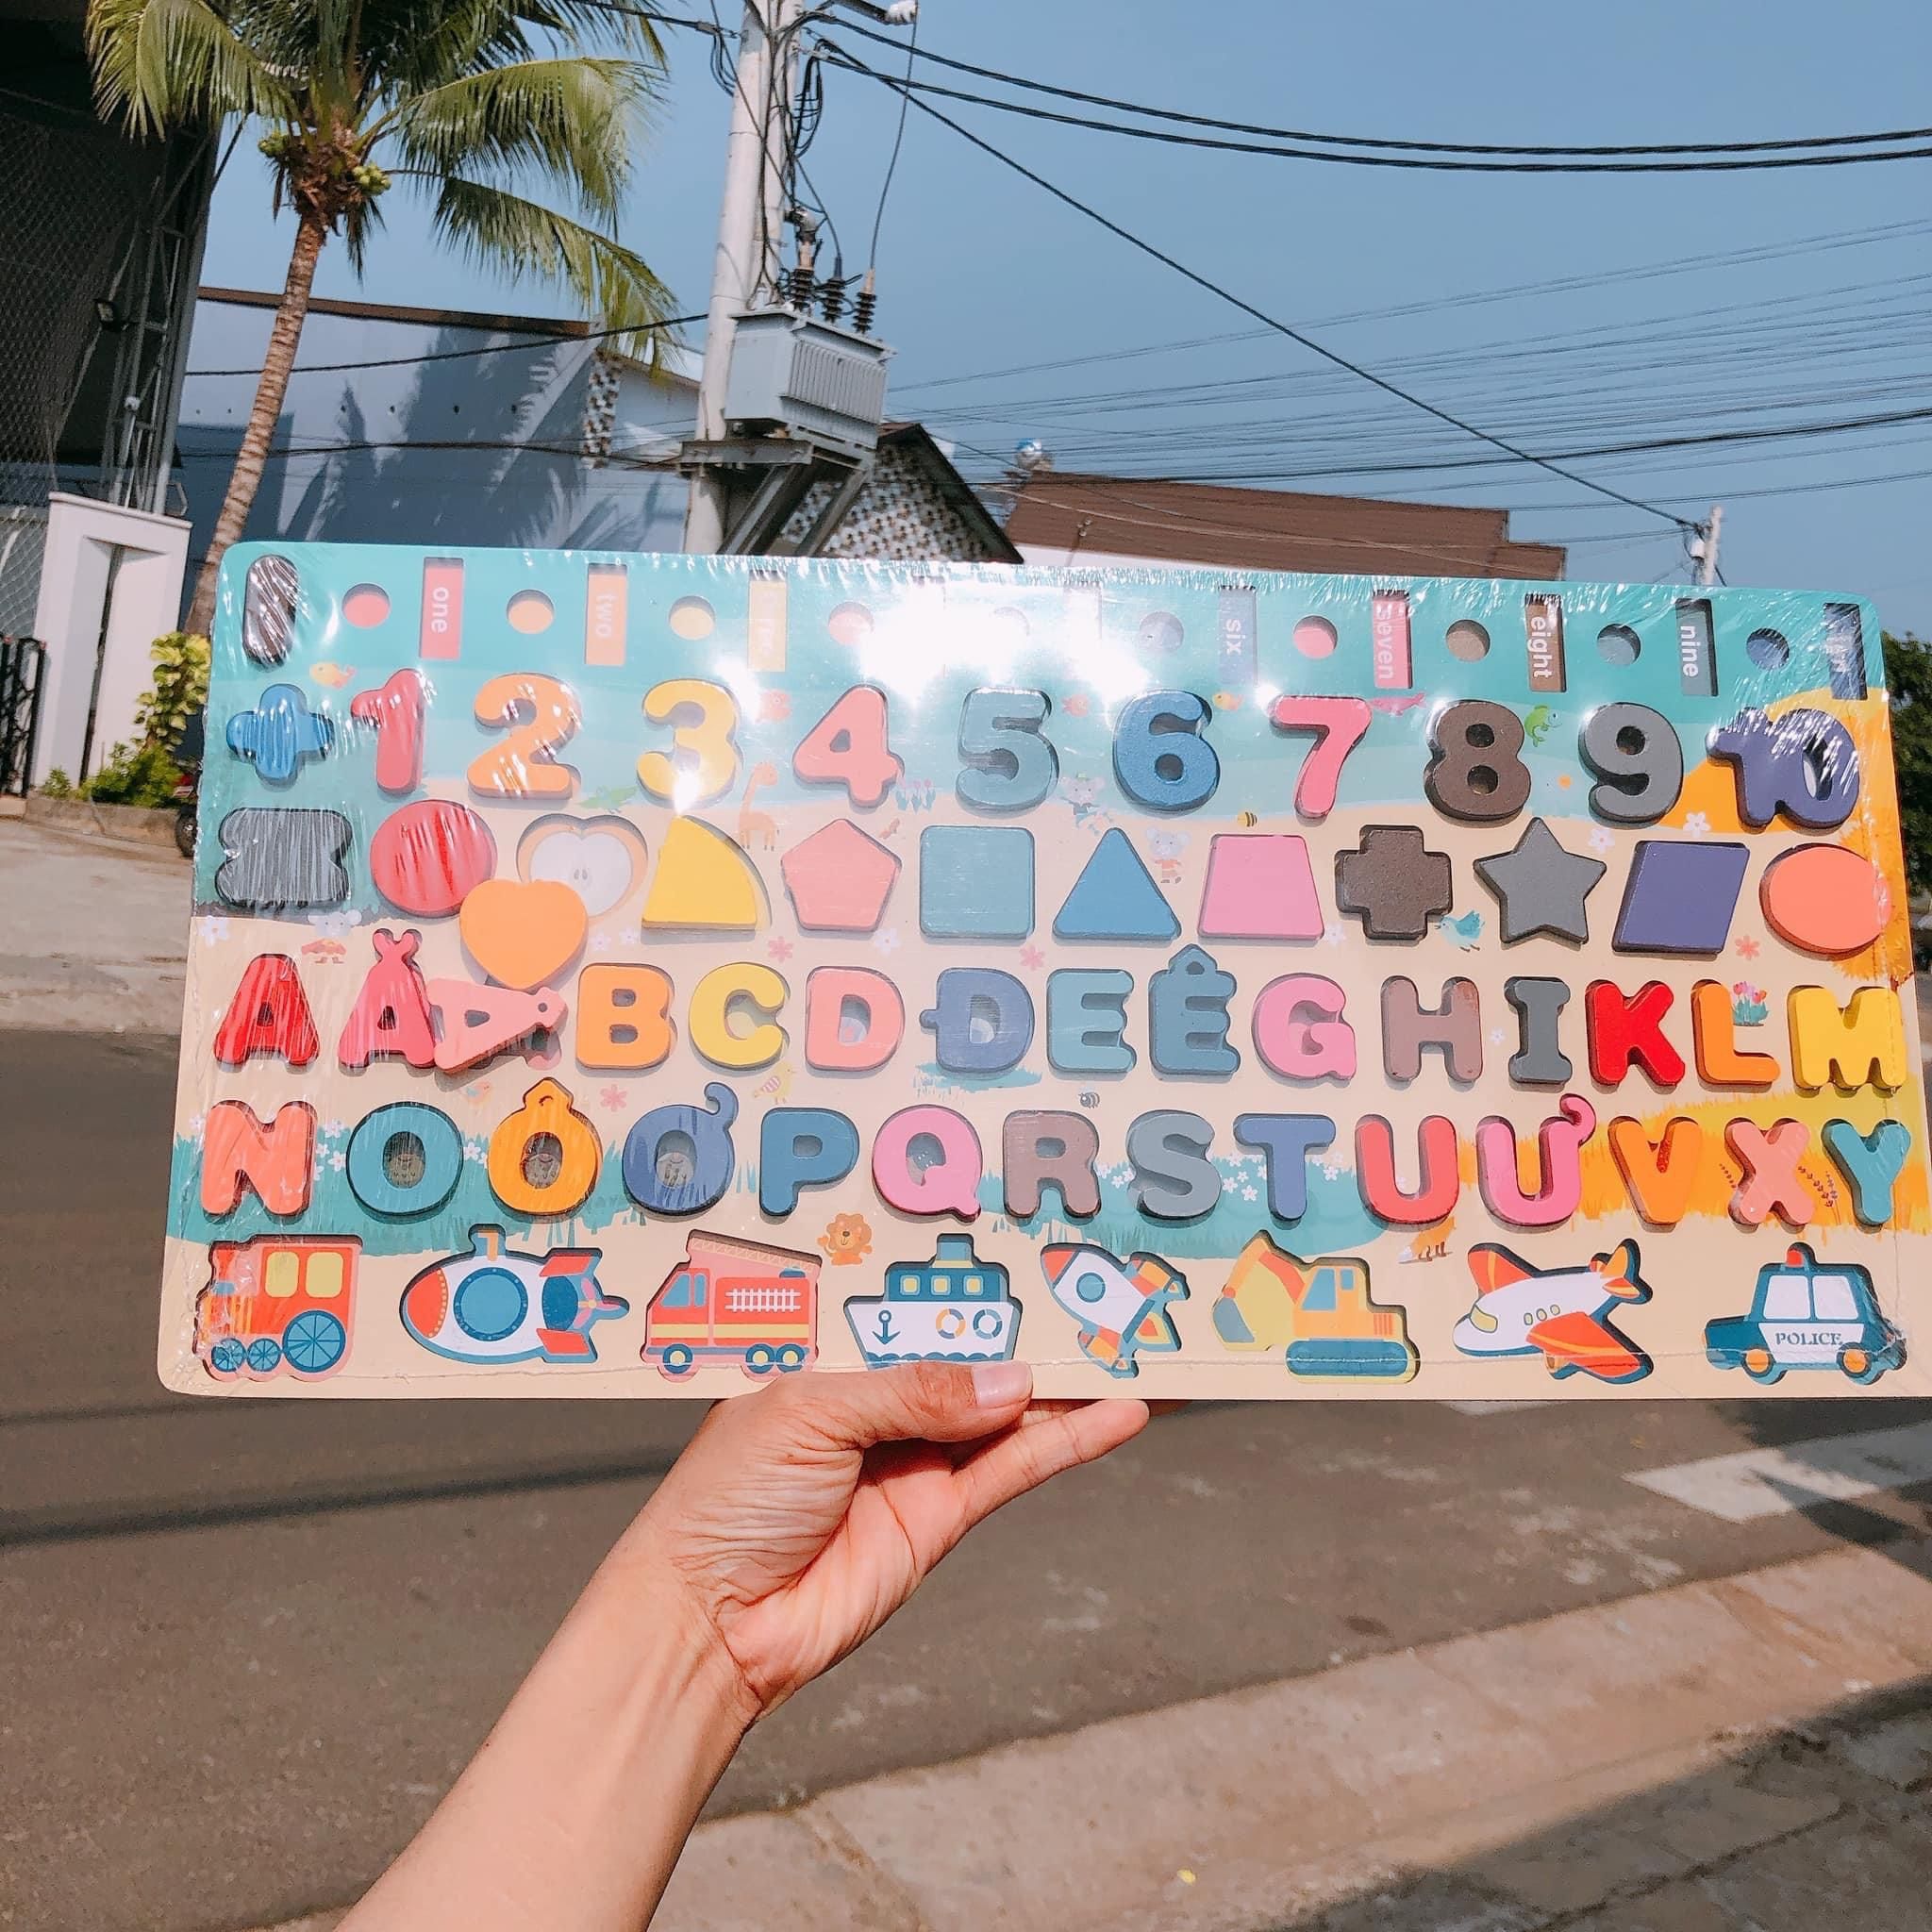 one two six seven eight nine
+ 1 2 3 4 5 6 7 8 9 10
A Ă Â B C D Đ E Ê G H I K L M
N O Ô Ơ P Q R S T U Ư V X Y
POLICE